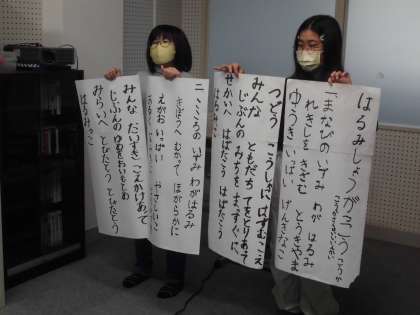 はるみしょうがっこう こうか
一 まなびの いずみ わが はるみ
れきしを きざむ とうきやま
ゆうき いっぱい げんきなこ
つどう こうしゃに はずむこえ
みんな ともだち てをとりあって
じぶんの みちを まっすぐに
せかいへ はばたこう はばたこう
はるみっこ
二 こころの いずみ わがはるみ
きぼうへ むかって ほがらかに
えがお いっぱい やさしいこ
みんな だいすき こえかけあって
じぶんの ゆめを おいもとめ
みらいへ とびたとう とびたとう
はるみっこ